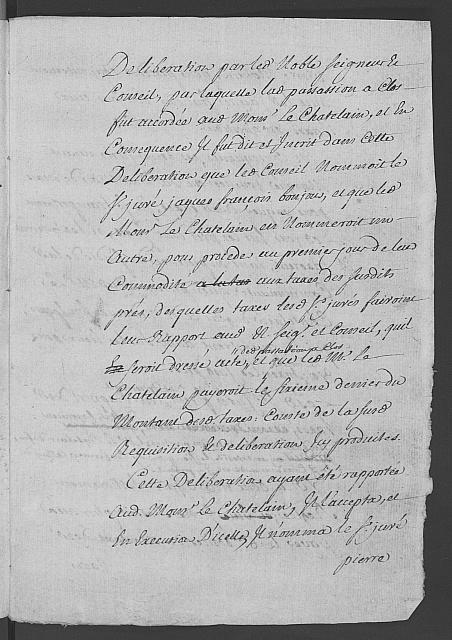 Deliberation par led Noble Seigneur &
Conseil, par laquelle lad passation a Clos
fut accordée aud Monsr Le Chatelain, et En
Consequence Il fut dit et Inscrit dans Cette
Deliberation que led Conseil Nommoit le
Sr juré jaques françois bonjour, et que led
Monsr Le Chatelain en Nommeroit un
Autre, pour proceder au premier jour de leur
Commodite a la tax aux taxes des susdits
prés, desquelles taxes lesd Srs jurés feroient
leur Rapport aud N Seigr et Conseil, quil
En seroit dressé acte, "ded passation a Clos et que led Mr Le
Chatelain payeroit le sixieme denier du
Montant desd taxes: Conste de la susd
Requisition & deliberation Icy produites.
Cette Deliberation ayant été rapportée
aud Monsr Le Chatelain, Il l'accepta, et
En Execution D'icelle, Il nomma le Sr juré
pierre